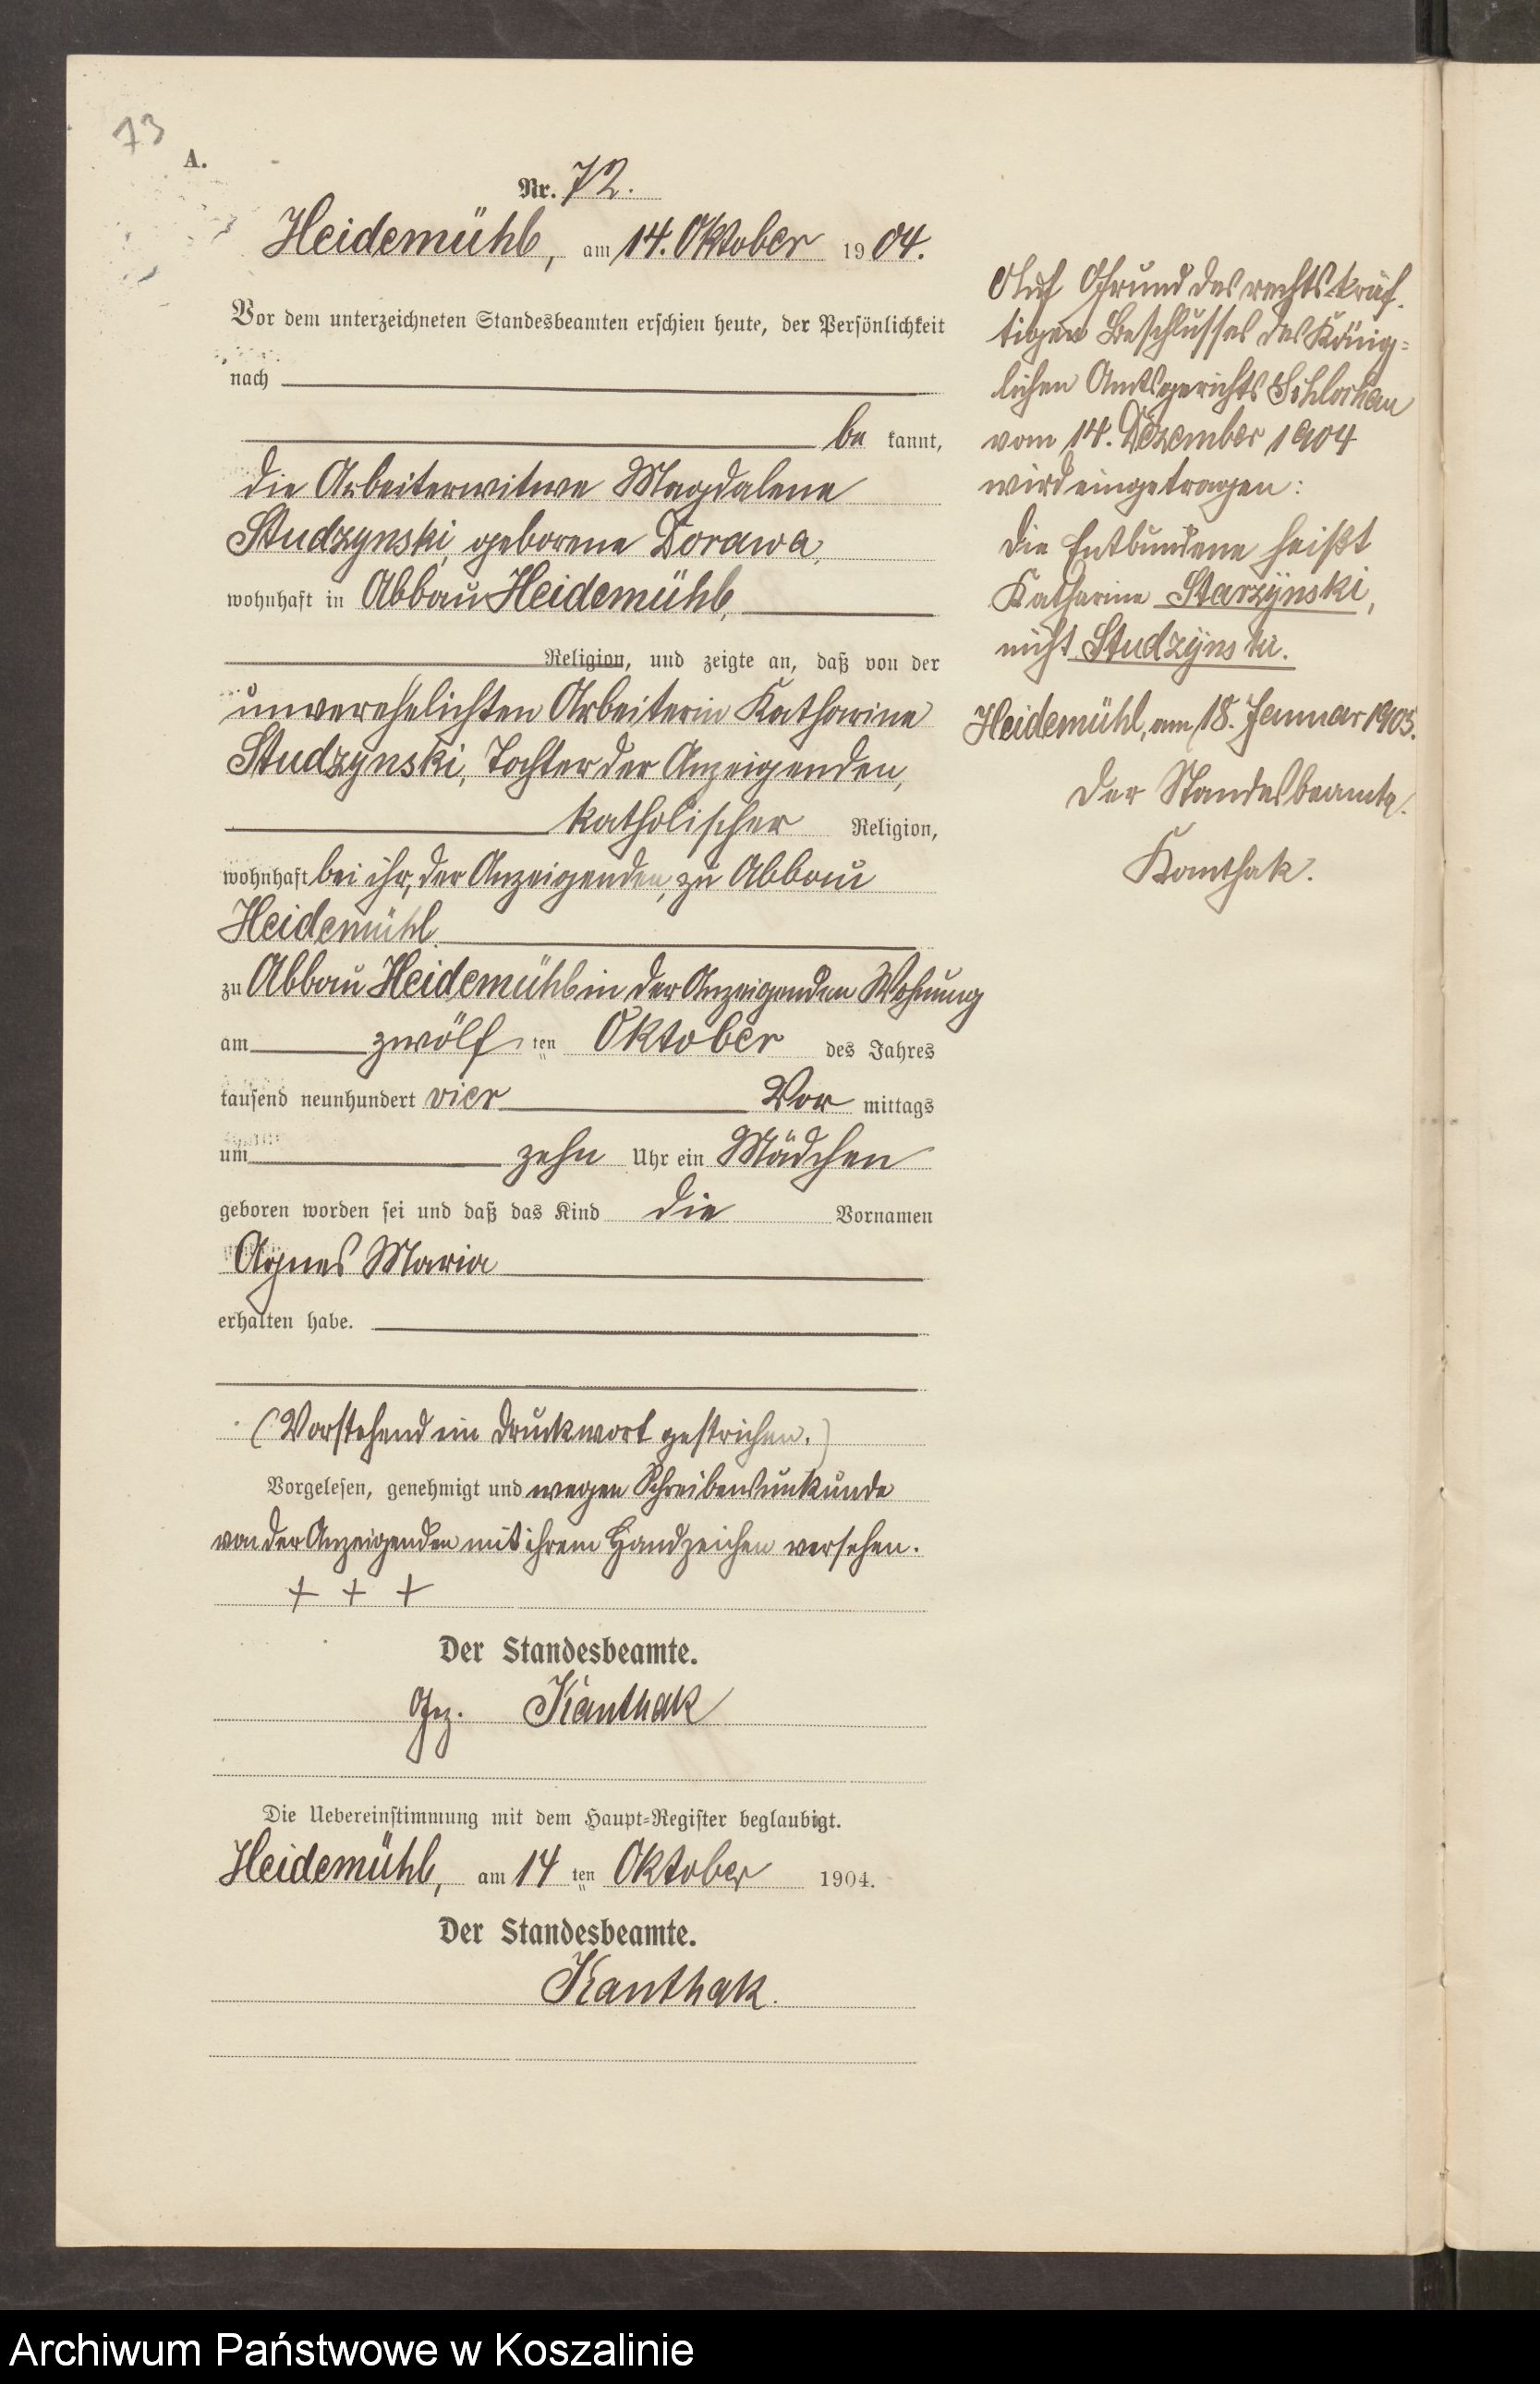 73
A.
Nr. 72.
Heidemühl, am 14. Oktober 1904.
Vor dem unterzeichneten Standesbeamten erschien heute, der Persönlichkeit
nach
be kannt,
die Arbeiterwitwe Magdalene
Studzynski, geborene Dorawa,
wohnhaft in Abbau Heidemühl,
Religion, und zeigte an, daß von der
unverehelichten Arbeiterin Katharina
Studzynski, Tochter der Anzeigenden,
katholischer Religion,
wohnhaft bei ihr, der Anzeigenden, zu Abbau
Heidemühl
zu Abbau Heidemühl in der Anzeigenden Wohnung
am zwölf ten Oktober des Jahres
tausend neunhundert vier Vor mittags
um zehn Uhr ein Mädchen
geboren worden sei und daß das Kind die Vornamen
Agnes Maria
erhalten habe.
(Vorstehend ein Druckwort gestrichen.)
Vorgelesen, genehmigt und wegen Schreibensunkunde
von der Anzeigenden mit ihrem Handzeichen versehen.
+ + +
Der Standesbeamte.
Gez. Kanthak
Die Uebereinstimmung mit dem Haupt-Register beglaubigt.
Heidemühl, am 14 ten Oktober 1904.
Der Standesbeamte.
Kanthak.
Auf Grund des rechtskräf-
tigen Beschlusses des König-
lichen Amtsgerichts Schlochau
vom 14. Dezember 1904
wird eingetragen:
Die Entbundene heißt
Katharina Starzynski,
nicht Studzynski.
Heidemühl, am 18. Januar 1905.
Der Standesbeamte.
Kanthak.
Archiwum Państwowe w Koszalinie